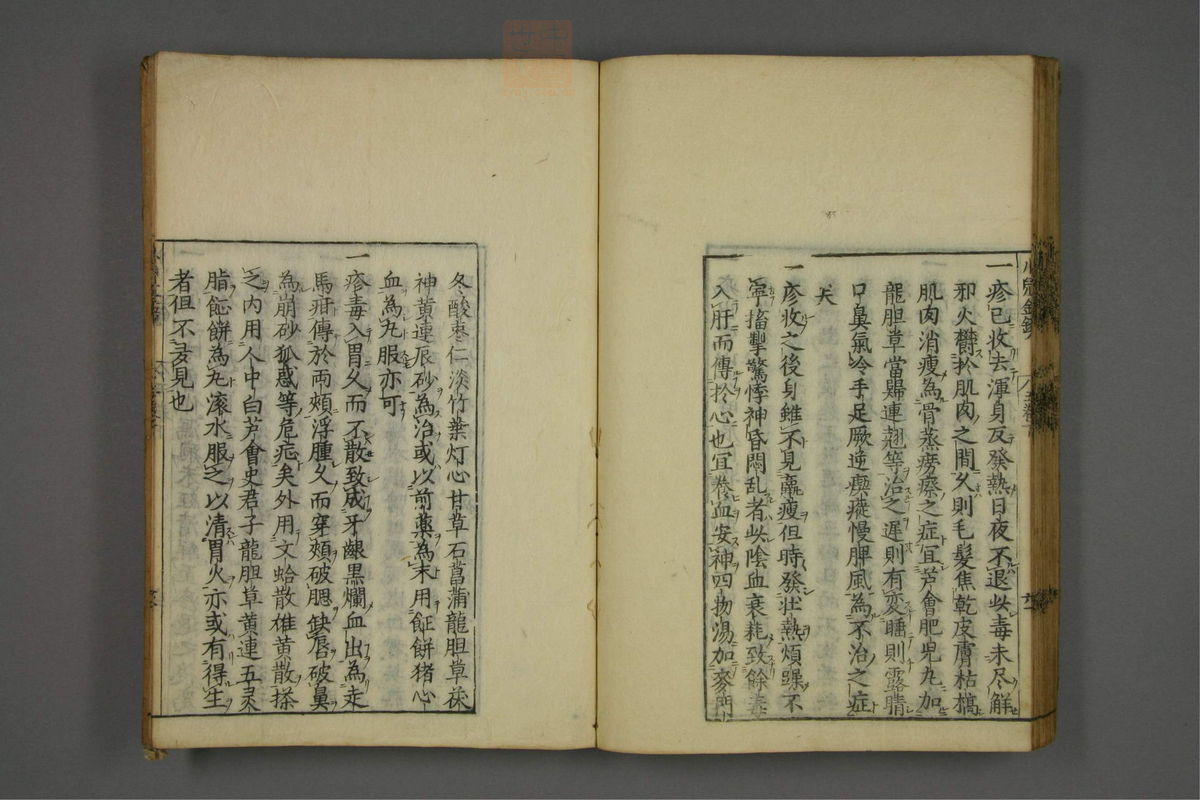 一疹已收去渾身反發熱日夜不退此毒未尽解
邪火欝於肌肉之間久則毛髮焦乾皮膚枯槁
肌肉消瘦為骨蒸癆瘵之症宜芦會肥兒丸加
龍胆草當歸連翹等治之遲則有変睡則露睛
口鼻氣冷手足厥逆瘈瘲慢脾風為不治之症
矣
一疹收之後身雖不見羸瘦但時發壮熱煩躁不
寧搐掣驚悸神昏悶乱者此陰血衰耗致餘毒
入肝而傳於心也宜養血安神四物湯加麥門
冬酸棗仁淡竹葉灯心甘草石菖蒲龍胆草茯
神黄連辰砂為治或以前薬為末用蒸餅猪心
血為丸服亦可
一疹毒入胃久而不散致成牙齦黒爛血出為走
馬疳傳於両頰浮腫久而穿頰破腮缺唇破鼻
為崩砂狐惑等危症矣外用文蛤散雄黄散搽
之内用人中白芦會史君子龍胆草黄連五灵
脂蒸餅為丸滾水服之以清胃火亦或有得生
者但不多見也